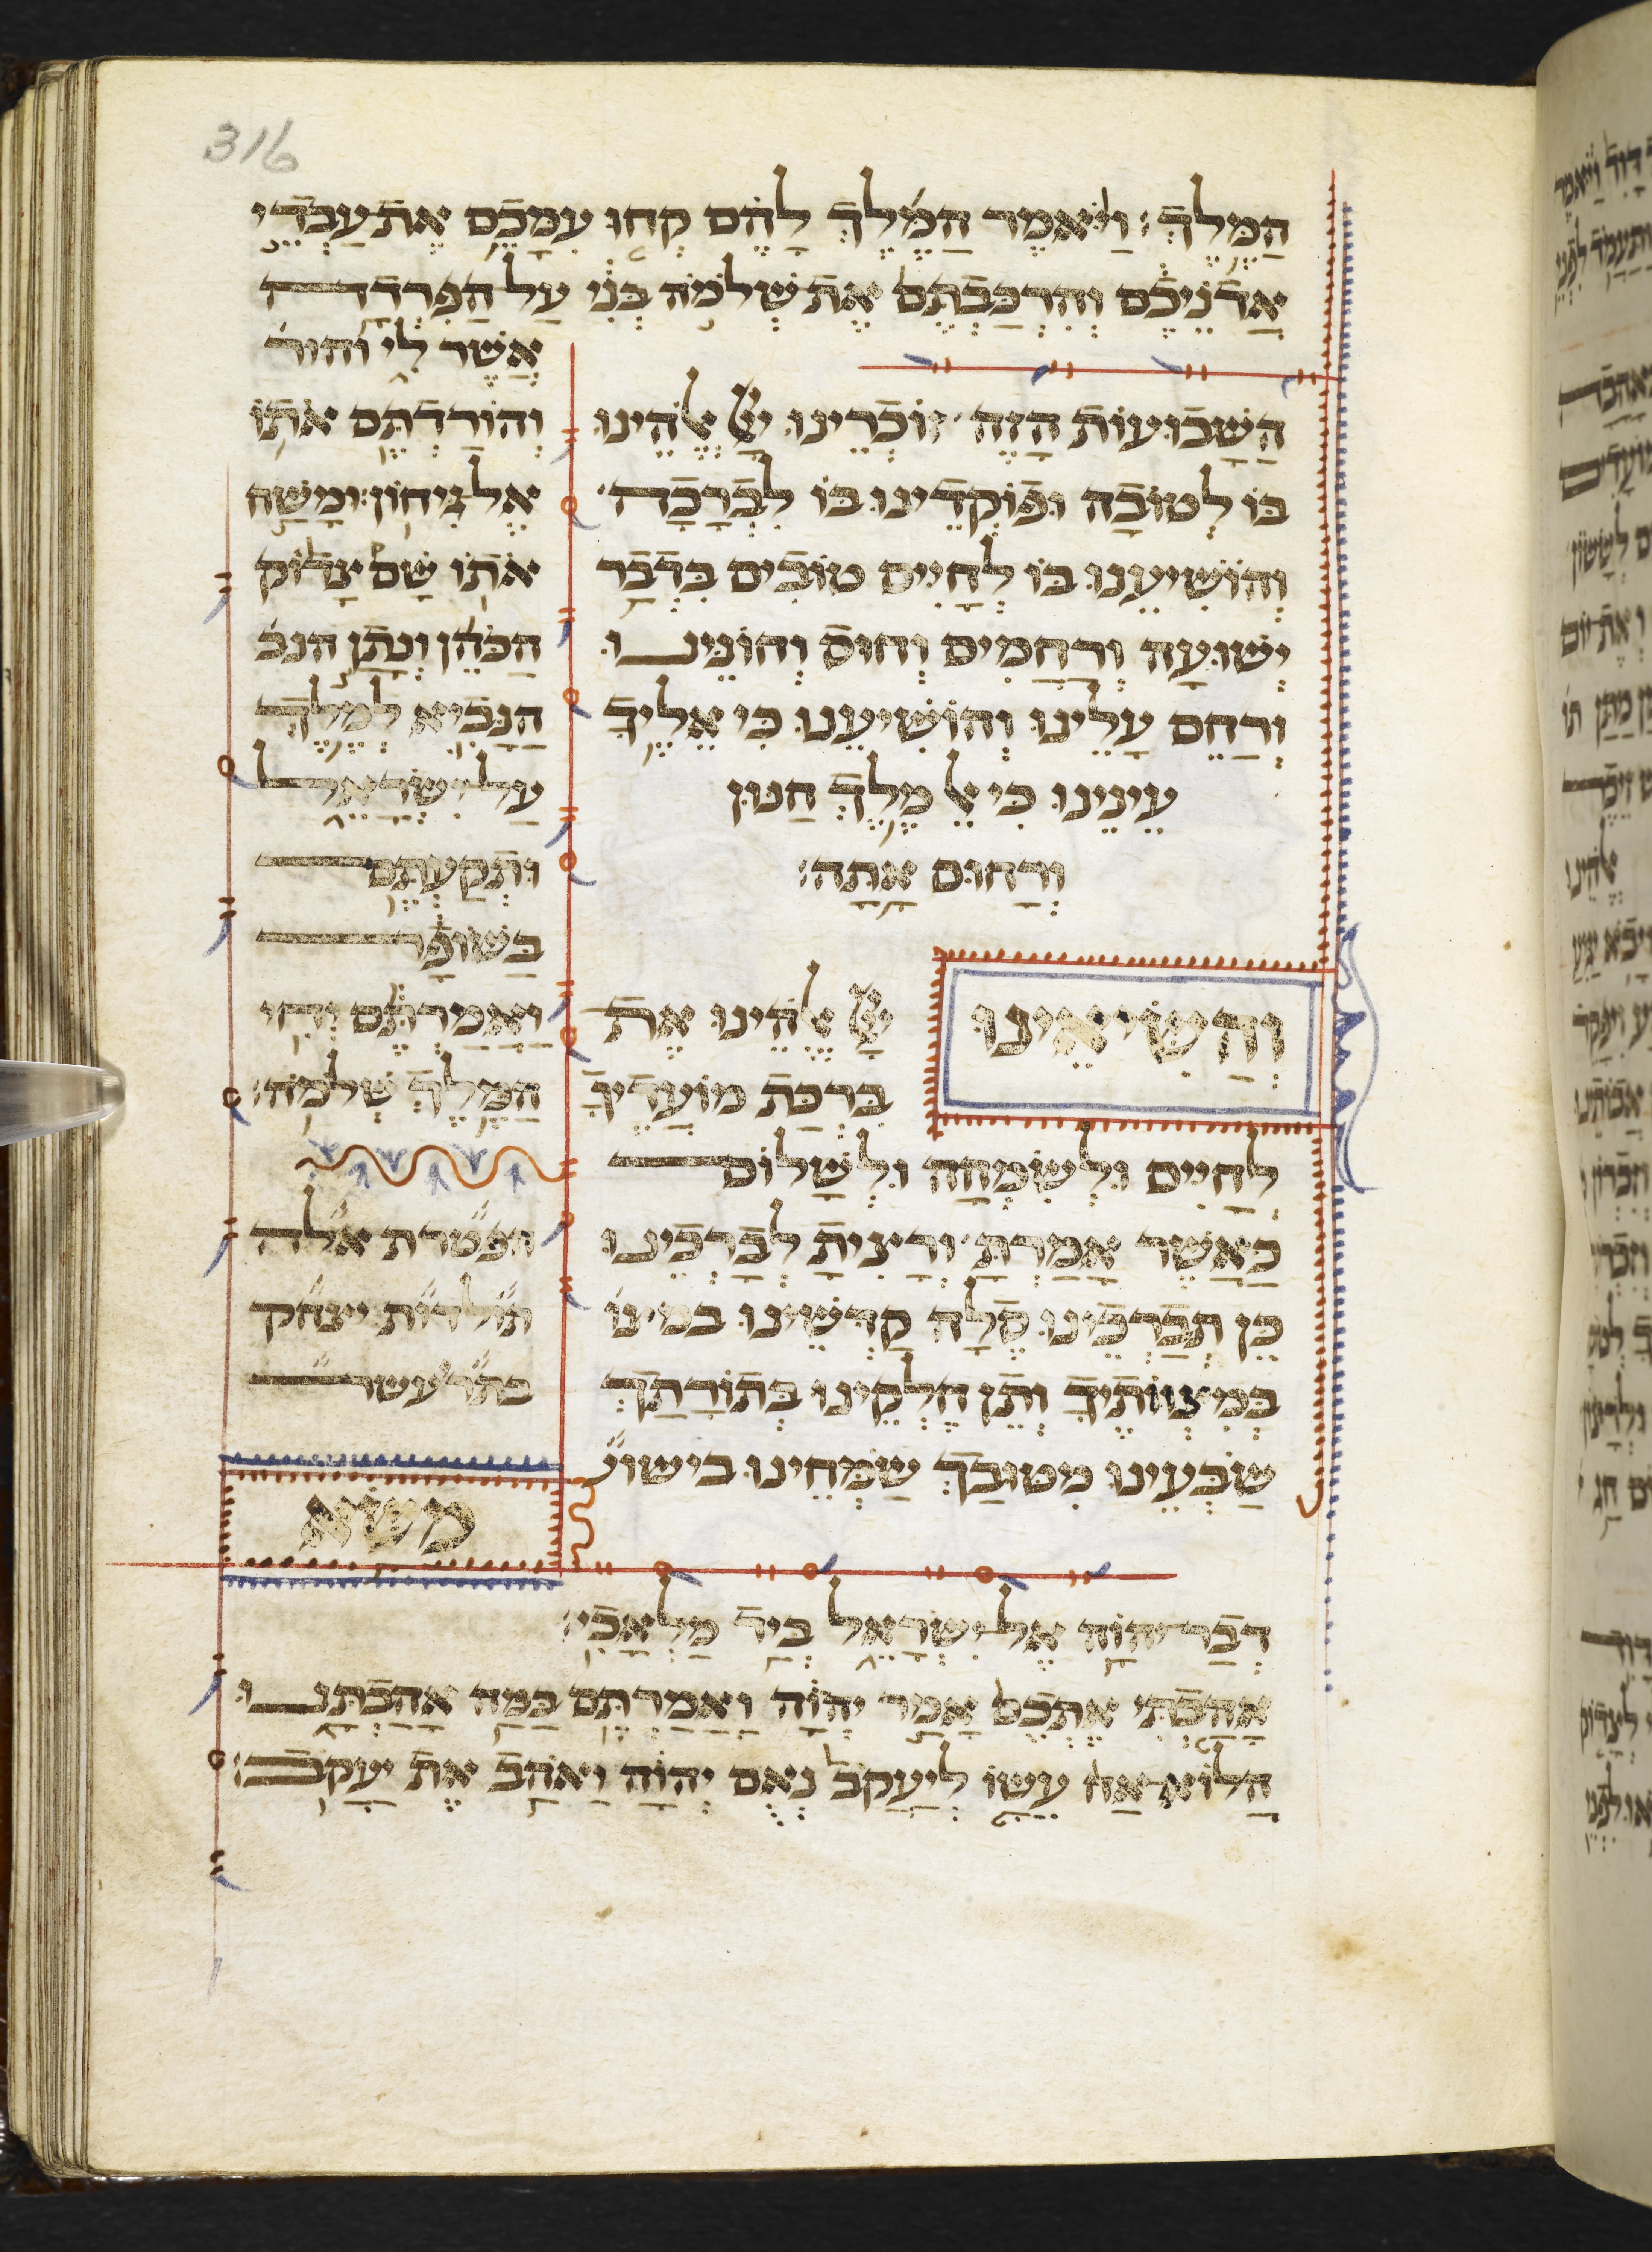 316
המלך ויאמר המלך להם קחו עמכם את עבדי
אדניכם והרכבתם את שלמה בני על הפרדה
השבועות הזה זוכרינו יי אלהינו
בו לטובה ופוקדינו בו לברכה
והושיענו בו לחיים טובים בדבר
ישועה ורחמים וחוס וחונינו
ורחם עלינו והושיענו כי אליך
עינינו כי אל מלך חנון
ורחום אתה
והשיאינו
יי אלהינו את
ברכת מועדיך
לחיים ולשמחה ולשלום
כאשר אמרת ורצית לברכינו
כן תברכינו סלה קדשינו במצו
במצוותיך ותן חלקינו בתורתך
שבעינו מטובך שמחינו בישוע
אשר לי
והורדתם אתו
אל גיחון ומשח
אתו שם צדוק
הכהן ונתן הנב
הנביא למלך
על ישראל
ותקעתם
בשופר
ואמרתם יחי
המלך שלמה
הפטרת אלה
תולדות יצחק
בתרי עשר
משא
דבר יהוה אל ישראל ביד מלאכי
אהבתי אתכם אמר יהוה ואמרתם במה אהבתנו
הלוא אח עשו ליעקב נאם יהוה ואהב את יעקב